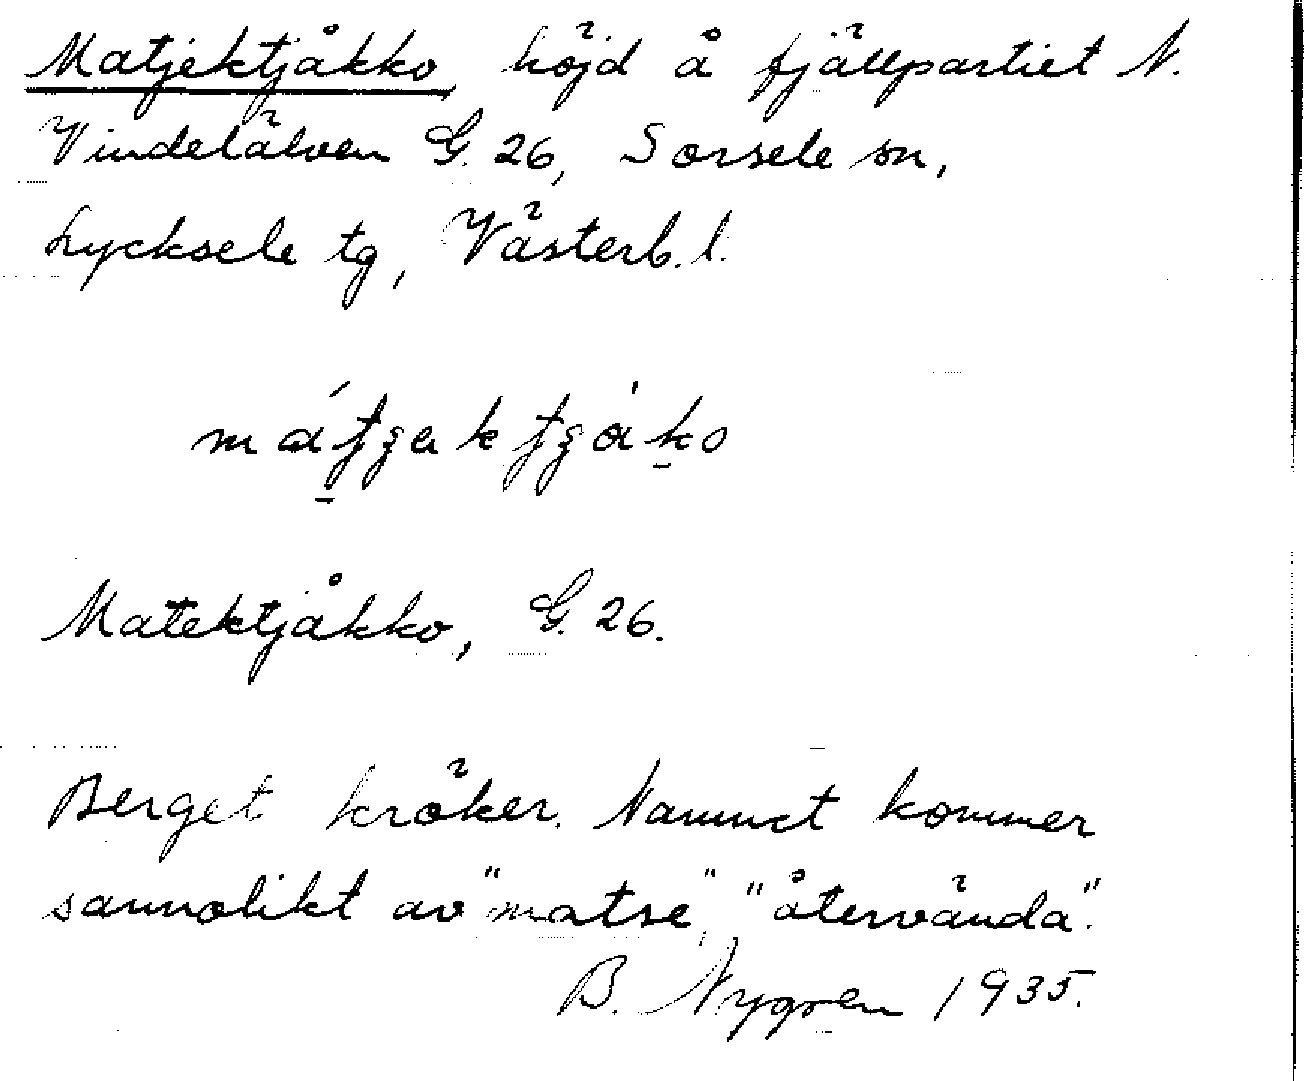 Matjektjåkko, höjd å fjällpartiet N.
Vindelälven G. 26, Sorsele sn,
Lycksele tg, Västerb. l.
Matektjåkko, G. 26.
Berget kröker. Namnet kommer
sannolikt av "matse", "återvända".
B. Nygren 1935.